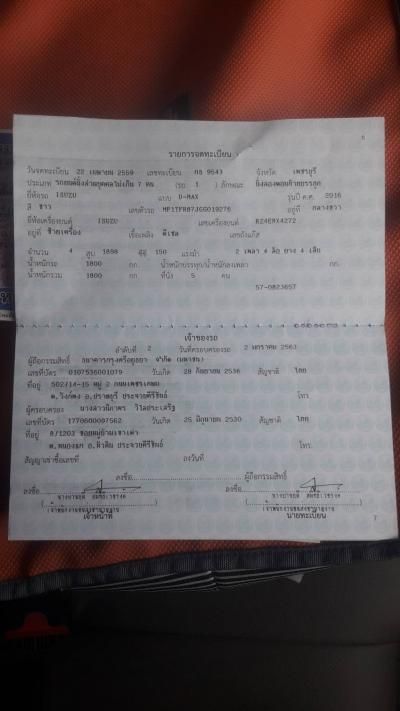 6
รายการจดทะเบียน
วันจดทะเบียน 22 เมษายน 2559 เลขทะเบียน กร 9543 จังหวัด เพชรบุรี
ประเภท รถยนต์นั่งส่วนบุคคลไม่เกิน 7 คน (รย 1 ) ลักษณะ นั่งสองตอนท้ายบรรทุก
ยี่ห้อรถ ISUZU แบบ D-MAX รุ่นปี ค.ศ. 2016
สี ขาว เลขตัวรถ MP1TFR87JGG019276 อยู่ที่ กลางขวา
ยี่ห้อเครื่องยนต์ ISUZU เลขเครื่องยนต์ RZ4ERX4272
อยู่ที่ ซ้ายเครื่อง เชื้อเพลิง ดีเซล เลขถังแก๊ส
จำนวน 4 สูบ 1898 ซีซี 150 แรงม้า 2 เพลา 4 ล้อ ยาง 4 เส้น
น้ำหนักรถ 1800 กก. น้ำหนักบรรทุก/น้ำหนักลงเพลา กก.
น้ำหนักรวม 1800 กก. ที่นั่ง 5 คน
57-0823657
เจ้าของรถ
ลำดับที่ 2 วันที่ครอบครองรถ 2 มกราคม 2563
ผู้ถือกรรมสิทธิ์ ธนาคารกรุงศรีอยุธยา จำกัด (มหาชน)
เลขที่บัตร 0107536001079 วันเกิด 28 กันยายน 2536 สัญชาติ ไทย
ที่อยู่ 502/14-15 หมู่ 2 ถนนเพชรเกษม
ต.วังก์พง อ.ปราณบุรี ประจวบคีรีขันธ์ โทร
ผู้ครอบครอง นางสาวนิภาพร วิไลประเสริฐ
เลขที่บัตร 1770600097562 วันเกิด 25 มิถุนายน 2530 สัญชาติ ไทย
ที่อยู่ 8/1203 ซอยหมู่บ้านเขาเต่า
ต.หนองแก อ.หัวหิน ประจวบคีรีขันธ์ โทร.
สัญญาเช่าซื้อเลขที่ ลงวันที่
ลงชื่อ ผู้ถือกรรมสิทธิ์
ลงชื่อ ลงชื่อ
เจ้าหน้าที่ นายทะเบียน
7